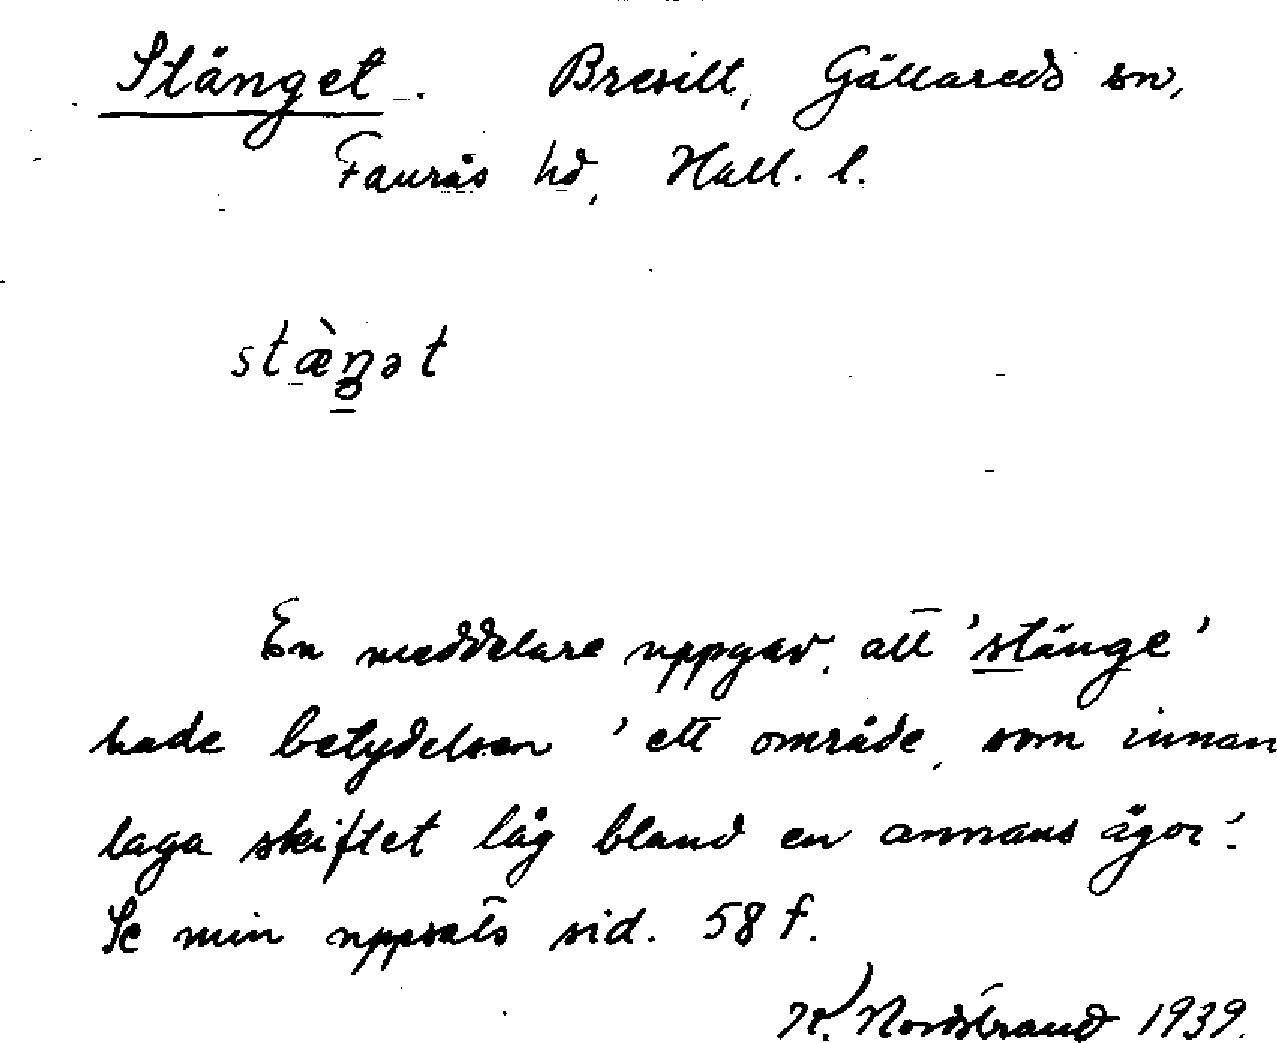 Stänget. Bresilt, Gällareds sn,
Faurås hd, Hall. l.
stæ̀ŋət
En meddelare uppgav, att 'stänge'
hade betydelsen 'ett område, som innan
laga skiftet låg bland en annans ägor'.
Se min uppsats sid. 58 f.
Nordstrand 1939.